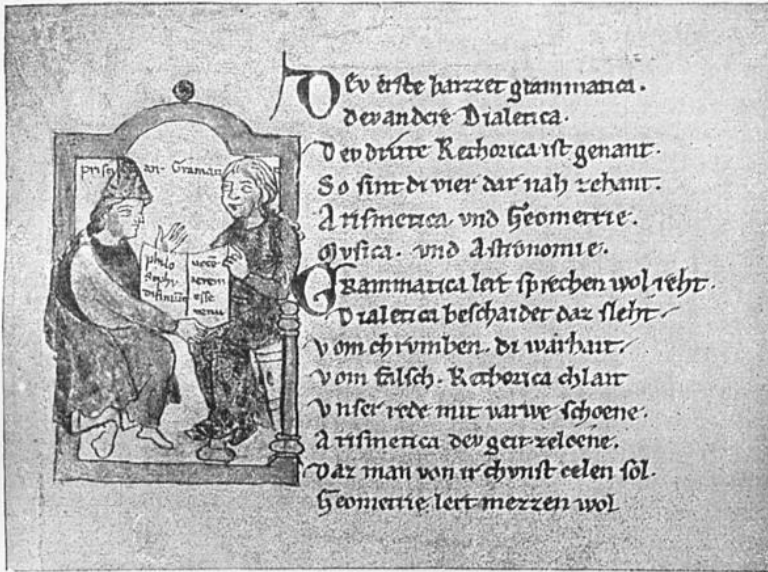 Dev erste haizzet grammatica.
dev andere Dialetica.
Dev dritte Rethorica ist genant.
So sint di vier dar nah zehant.
Arismetica vnd Geometrie.
Mvsica. vnd Astronomie.
Grammatica lert sprechen wol reht.
Dialetica beschaidet daz sleht
vom chrvmben. di warhait.
vom falsch. Rethorica chlait
vnser rede mit varwe schoene.
Arismetica dev geit zeloene.
Daz man von ir chvnst celen sol.
Geometrie lert mezzen wol
philo
sophi
esse